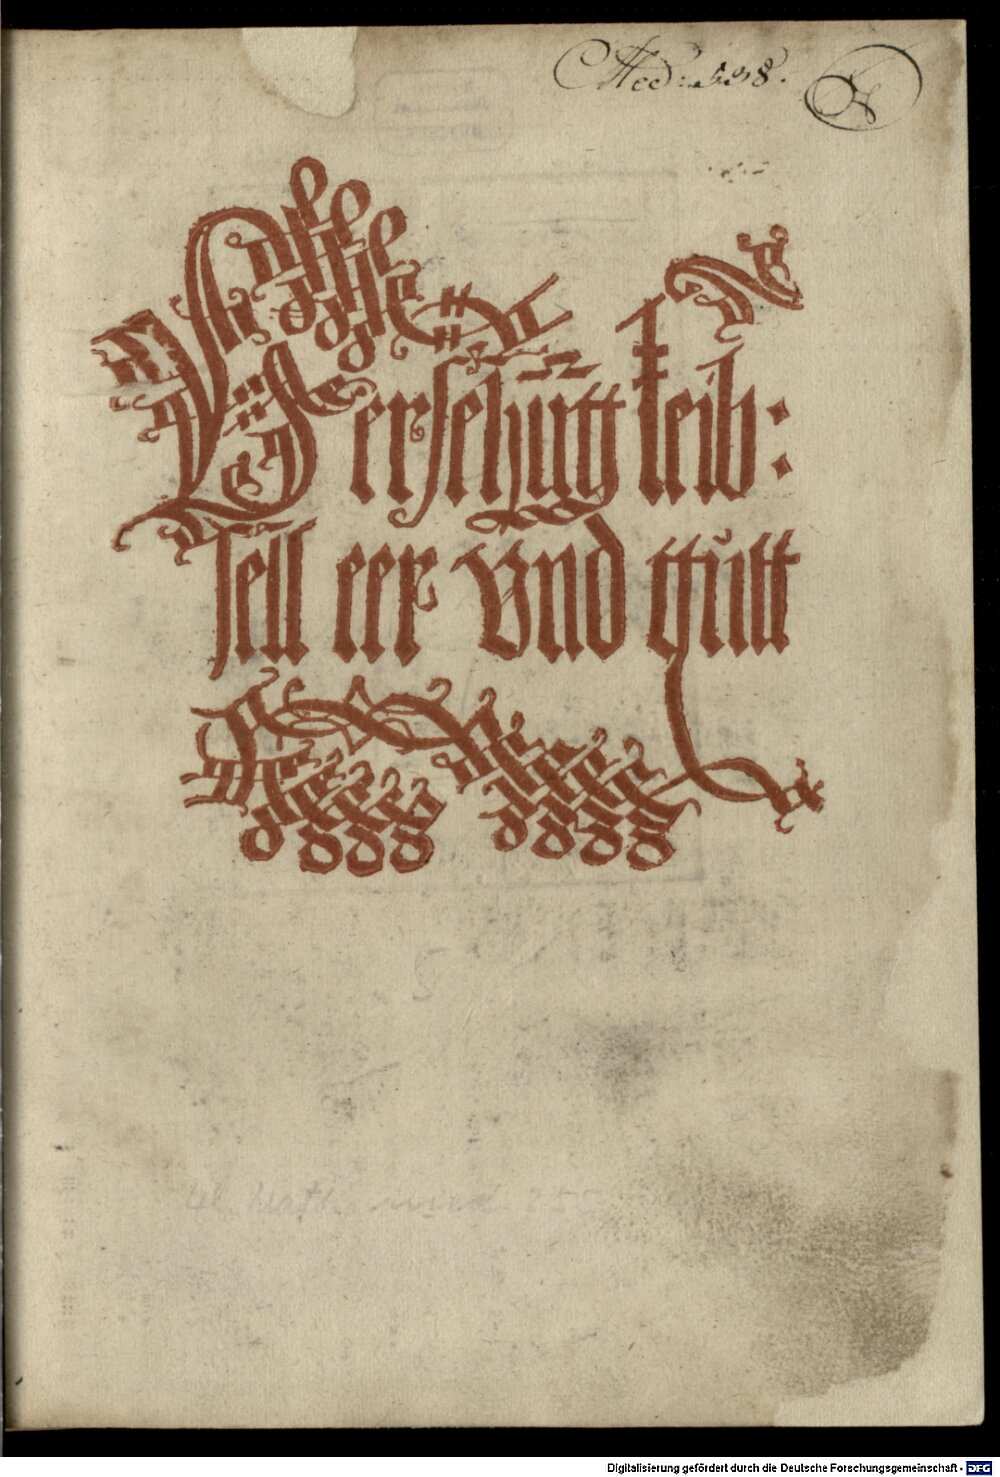 Med: 598.
Versehūg leib:
sell eer vnd gůtt
Digitalisierung gefördert durch die Deutsche Forschungsgemeinschaft - DFG